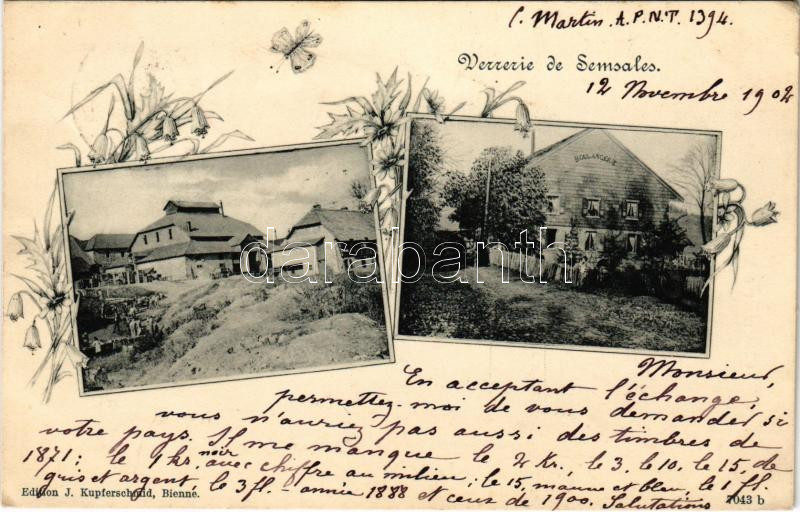 C. Martin. A.P.N.T. 1394.
Verrerie de Semsales.
12 Novembre 1902
BOULANGERIE
darabanth
Monsieur,
En acceptant l'échange,
permettez-moi de vous demander si
vous n'auriez pas aussi des timbres de
votre pays. Il me manque le 2 Kr., le 3. le 10. le 15, de
1871: le 1 kr. noir avec chiffre au milieu; le 15, mauve et bleu, le 1 fl.
gris et argent, le 3 fl. - année 1888 et ceux de 1900. Salutations
Edition J. Kupferschmid, Bienne.
7043 b